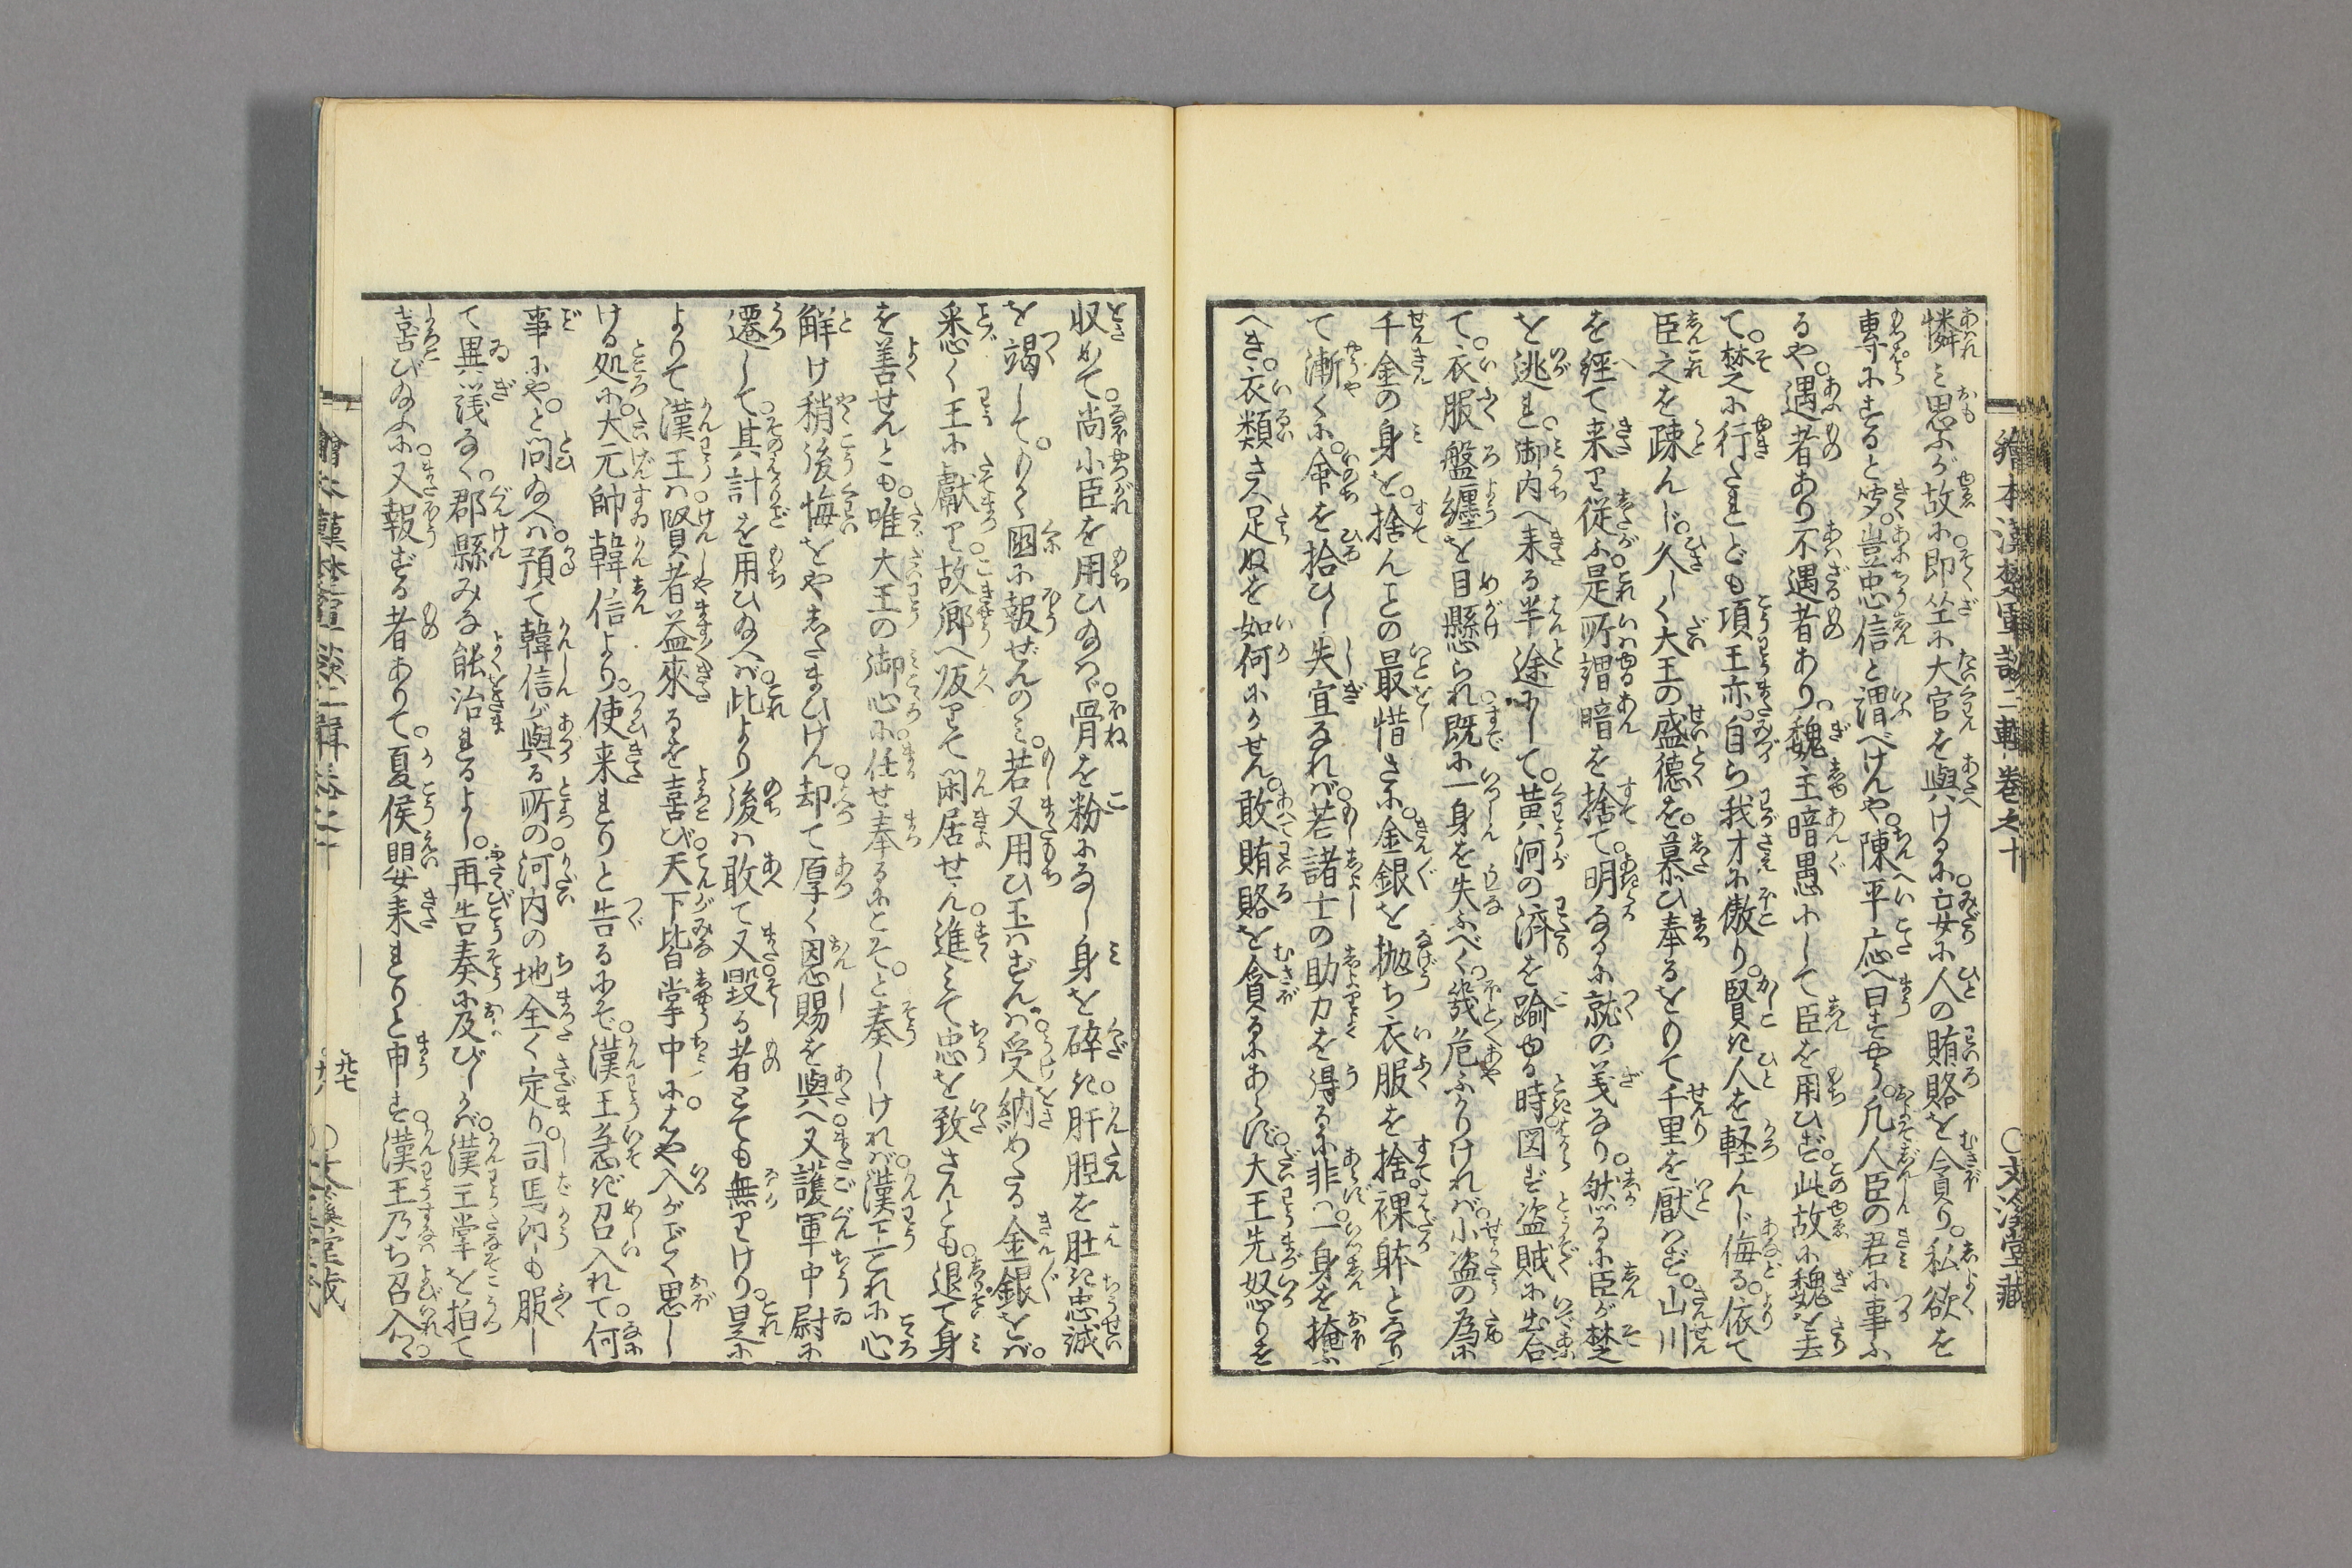 繪本漢楚軍談二輯卷之十
○文溪堂藏
憐み思ふが故に即坐に大官を與けるに妄に人の賄賂を貪り。私欲を
專にすると聞。豈忠信と謂べけんや。陳平応へ曰すやう。凡人臣の君に事ふ
るや。遇者あり不遇者あり。魏主暗愚にして臣を用ひず。此故に魏を去
て。楚に行たれども項王亦。自ら我才に傲り。賢き人を軽んじ侮る。依て
臣之を疎んじ。久しく大王の盛德を。慕ひ奉るをもて千里を厭はず。山川
を經て来り従ふ。是所謂暗を捨て。明なるに就の義なり。然るに臣が楚
を逃れ。御内へ来る半途にして。黄河の済を踰ゆる時。図ず盗賊に出合
て。衣服盤纏を目懸られ。既に一身を失ふべく。幾危ふかりけれバ。小盗の為に
千金の身を。捨んことの最惜さに。金銀を抛ち衣服を捨。裸躰となり
て漸くに。命を拾ひし失宜なれバ。若諸士の助力を得るに非ハ。一身を掩ふ
へき。衣類さへ足ぬを如何にかせん。敢賄賂を貪るにあらず。大王先怒りを
収めて。尚小臣を用ひ給ハヾ。骨を粉になし身を碎き。肝胆を肚き忠誠
を竭して。もて國に報ぜんのミ。若又用ひ玉はずんハ。受納めたる金銀をバ。
悉く王に獻り。故郷へ皈りて閑居せん。進ミて忠を致さんとも。退て身
を善せんとも。唯大王の御心に任せ奉るにこそ。と奏しけれバ。漢王これに心
解け稍後悔をやしたまひけん。却て厚く恩賜を與へ。又護軍中尉に
遷して。其計を用ひ給へバ。此より後ハ敢て又毀る者とても無りけり。是に
よりて漢王ハ。賢者益來るを喜び。天下皆掌中に。はや入がごとく思し
ける処に。大元帥韓信より。使来れりと告るにぞ。漢王急ぎ召入れて。何
事にや。と問給へハ。預て韓信が與る所の。河内の地全く定り。司馬卬も服し
て異議なく。郡縣みな能治まれるよし。再告奏に及びしかバ。漢王掌を拍て
喜び給ふに。又報ずる者ありて。夏侯嬰来れりと申す。漢王乃ち召入るゝ